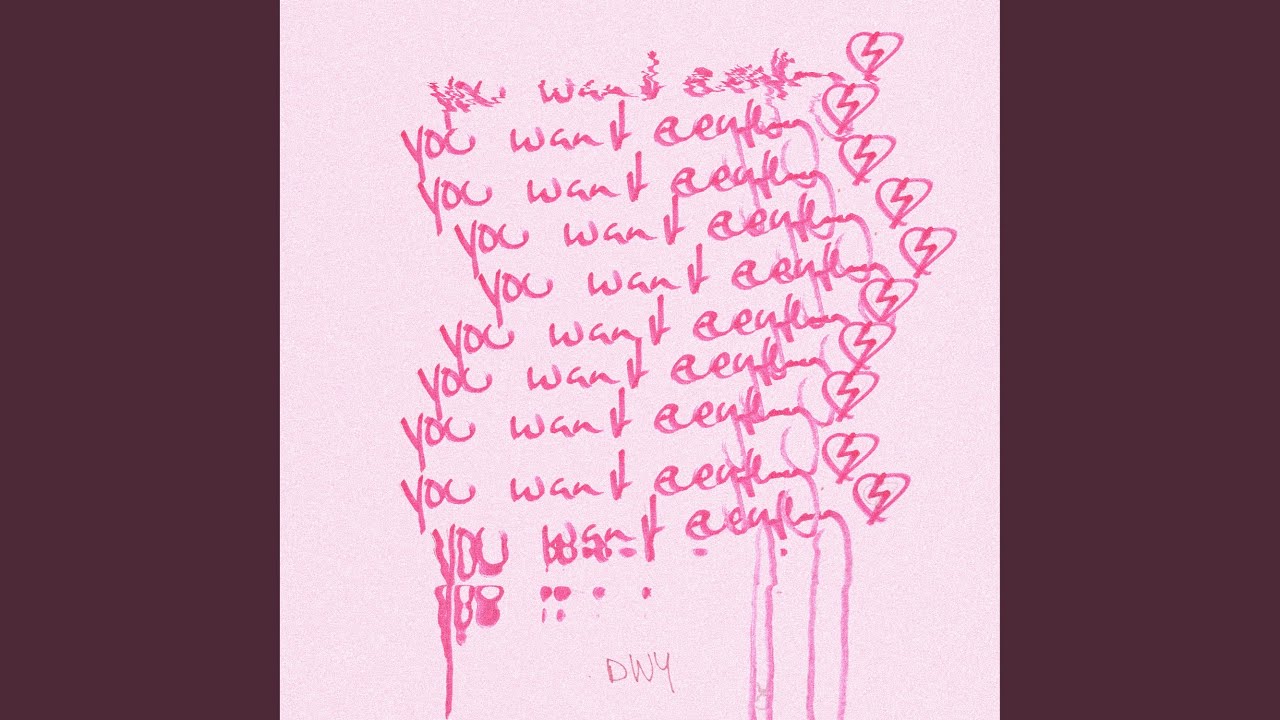 you want everything
you want everything
you want everything
you want everything
you want everything
you want everything
you want everything
you want everything
you want everything
you want everything
you
DWY